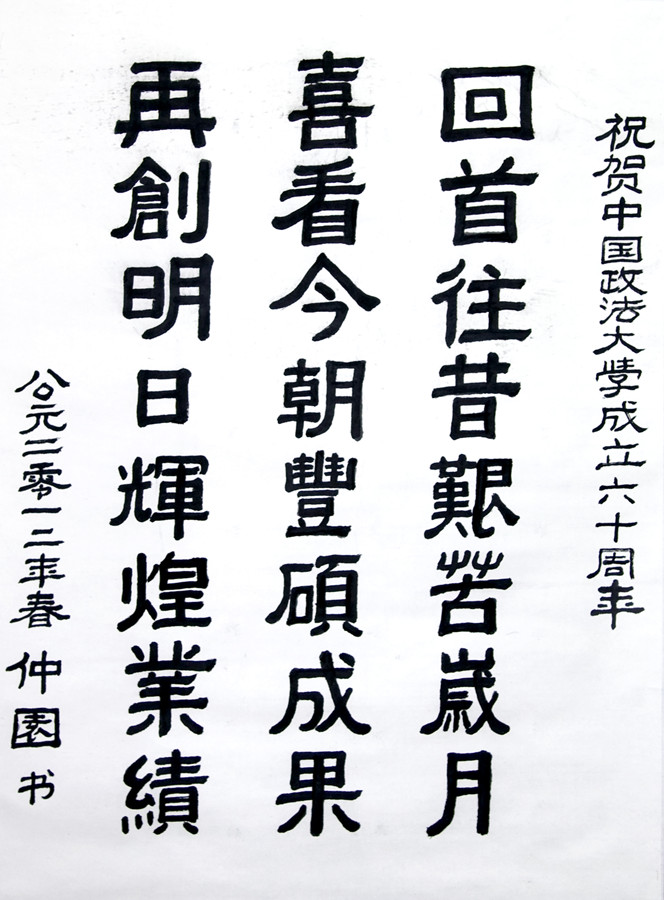 祝贺中国政法大學成立六十周年
回首往昔艱苦歲月
喜看今朝豐碩成果
再創明日輝煌業績
公元二零一二年春 仲園书